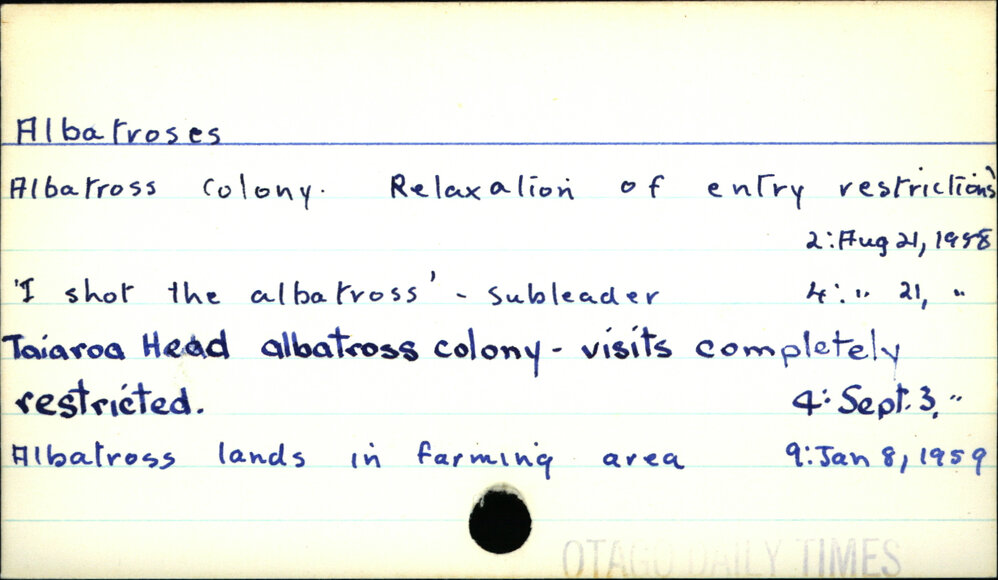 Albatroses
Albatross Colony. Relaxation of entry restrictions
2: Aug 21, 1958
'I shot the albatross' - subleader 4: " 21, "
Taiaroa Head albatross colony - visits completely
restricted. 4: Sept. 3, "
Albatross lands in farming area 9: Jan 8, 1959
OTAGO DAILY TIMES